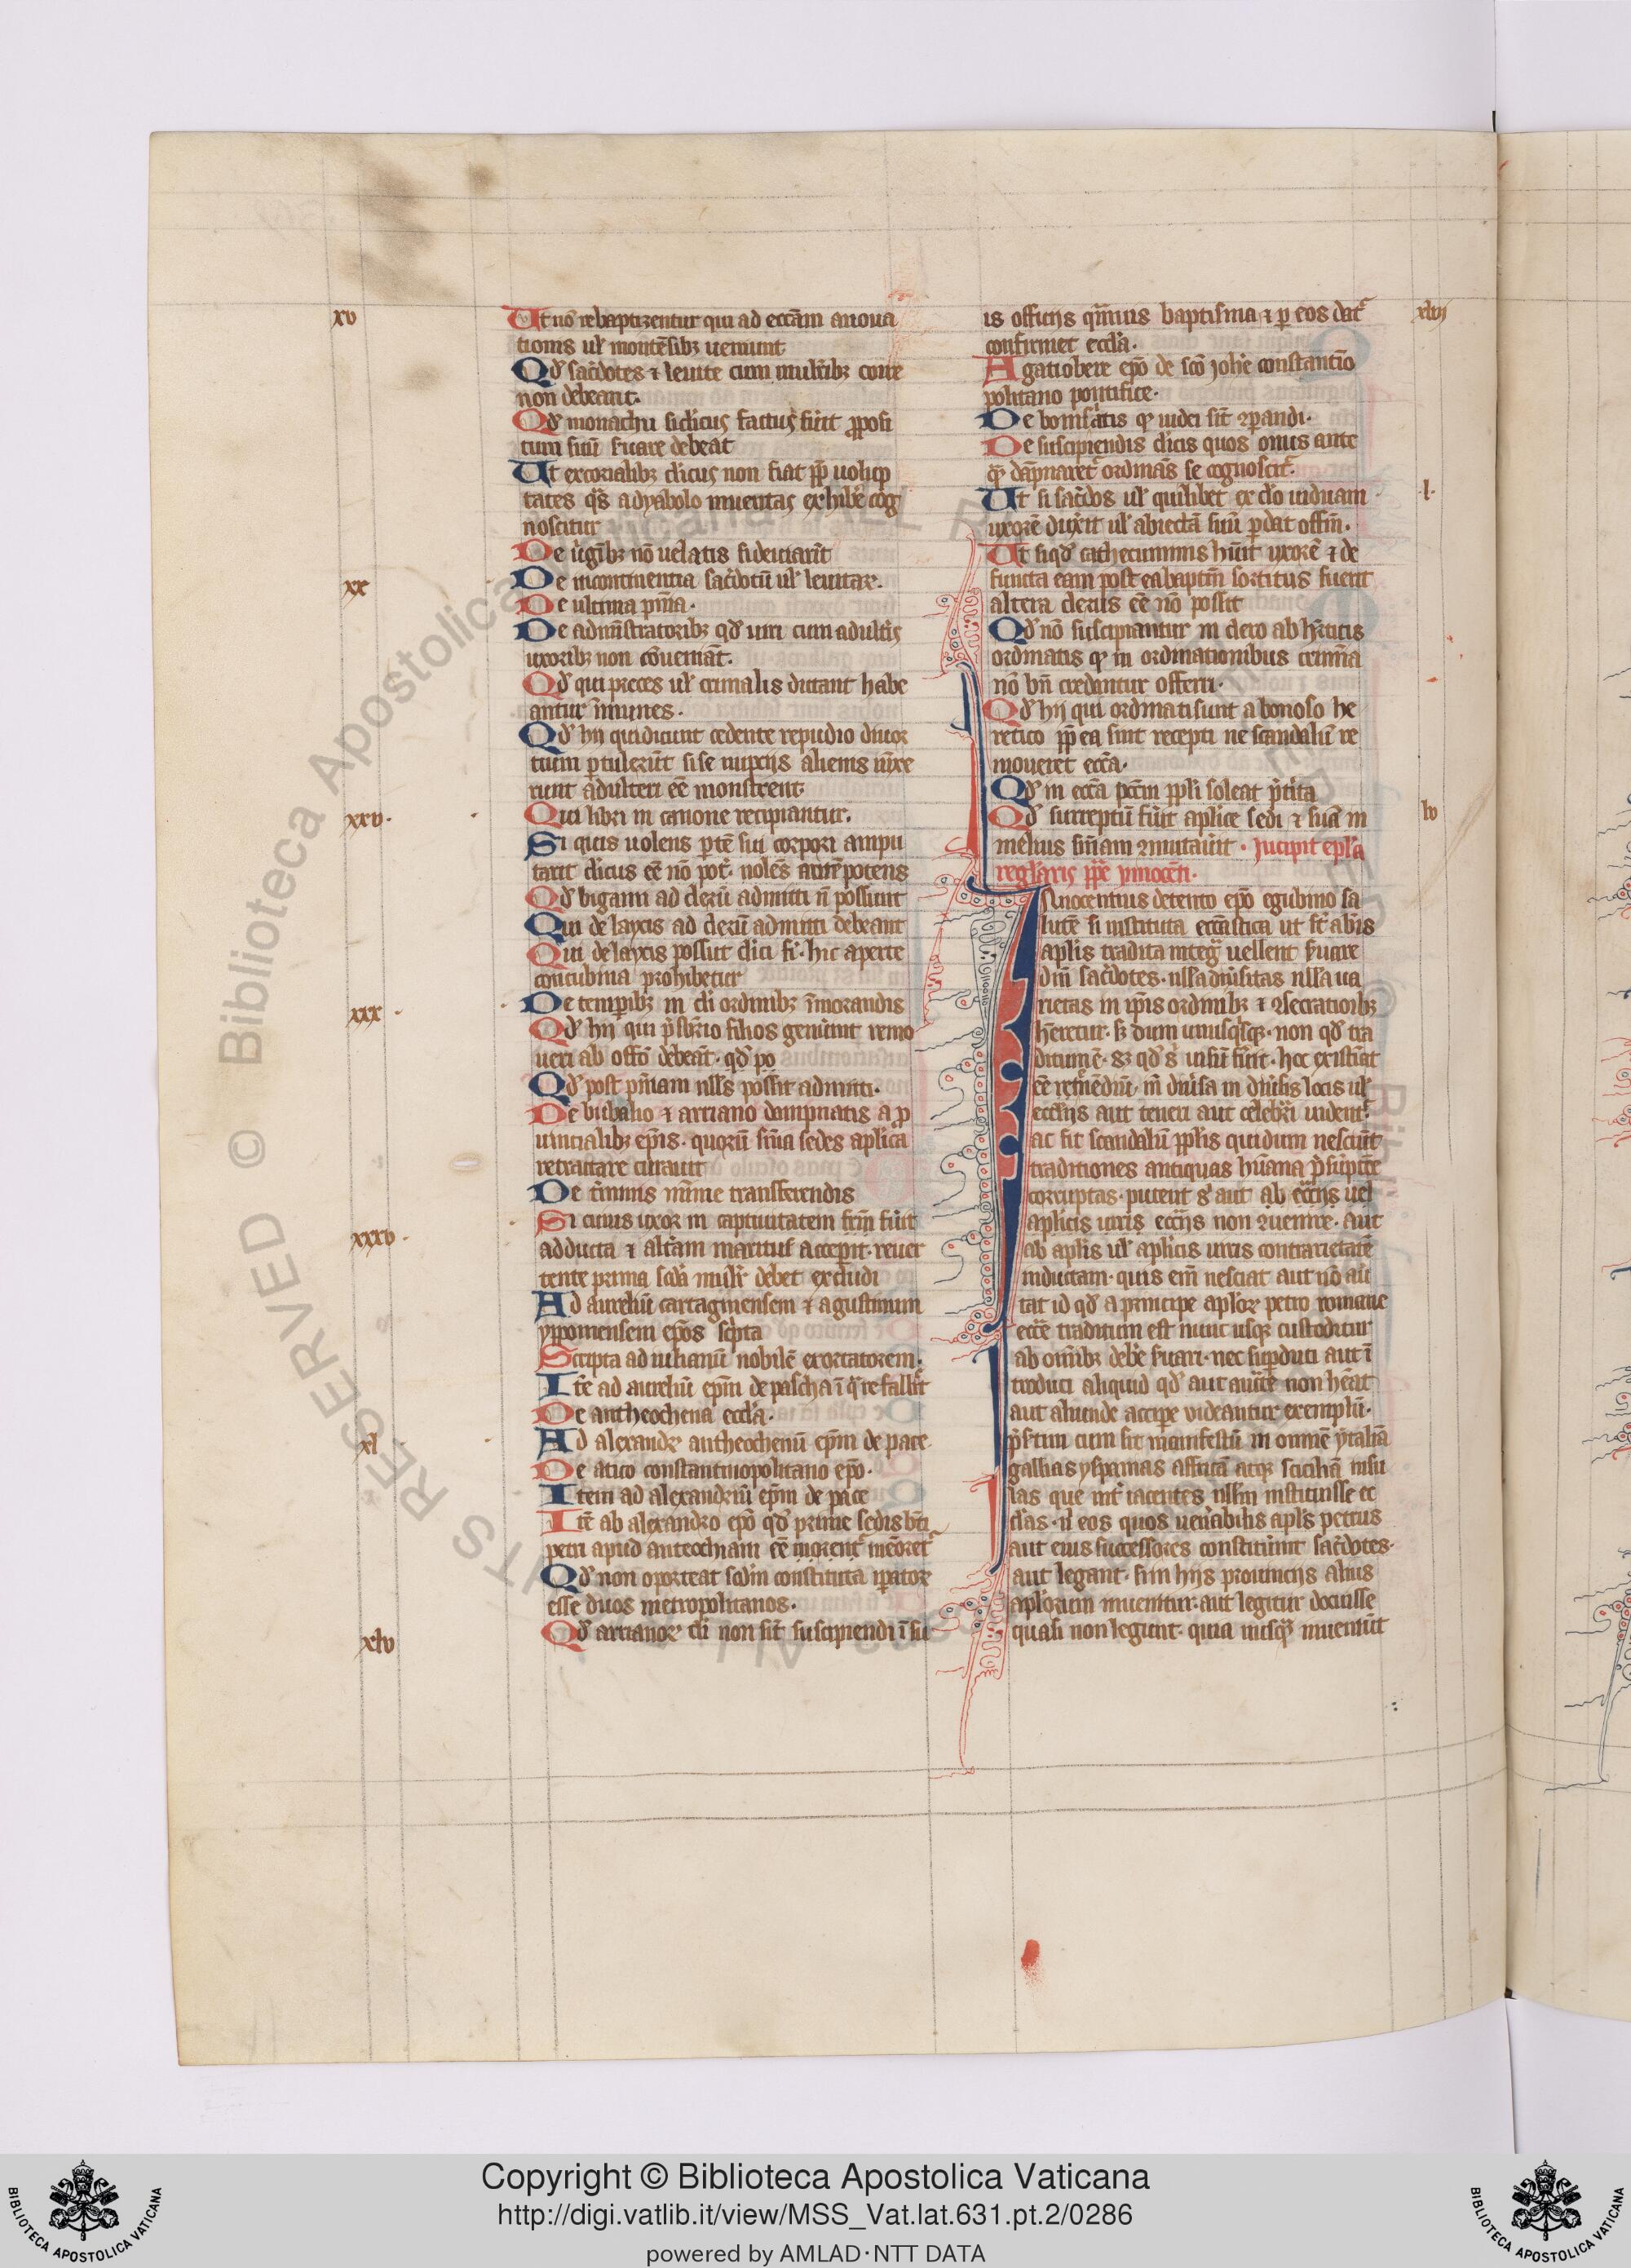 xv
Ut nō rebaptizentur qui ad eccām a noua
tionis ul' montēsibꝫ ueniunt
Qď sac̄dotes ⁊ leuite cum mulīribꝫ coire
non debeant.
Qď monachi si clicus factus fūit ꝓposi
tum suū s̄uare debeat
Ut ex corialibꝫ clicus non fiat ꝓp̄ uolup
tates q̄s a dyabolo inuentas exhibe cog
noscitur
De ūginibꝫ nō uelatis si deuiarīt
xx
De incontinentia sac̄dotū ul' leuitaꝝ.
De ultima pn̄ia.
De admīstratoribꝫ qď uiri cum adultīs
uxoribꝫ non cōueniāt.
Qď qui preces ul' criminalis dictant habe
antur īmunes.
Qď hij qui dicunt cedente repudio diuor
tium ꝑtulerūt si se nuptijs alienis iūxe
runt adulteri eē monstrent
xxv.
Qui libri in canone recipiantur.
Si quis uolens ꝑtē sui corpori ampu
tarit clicus eē nō pot. nolēs autē potens
Qď bigami ad clerū admitti n̄ possunt
Qui de laycis ad clerū admitti debeant
Qui de laycis possūt clici fi. hic aperte
concubina prohibetur
xxx.
De temporibꝫ in cli ordinibꝫ īmorandis
Qď hij qui p̄sbr̄io filios genūint remo
ueri ab offō debeāt. qď po
Qď post pn̄iam nll's possit admitti.
De bubalio ⁊ arciano dampnatis a ꝓ
uincialibꝫ epīs. quorū sn̄ia sedes aplica
retractare curauit
De tīminis mīme transferendis
xxxv.
Si cuius uxor in captiuitatem fūit
adducta ⁊ altām maritus accepīt. reuer
tente prima scđa mulr̄ debet excludi
Ad aureliū cartaginensem ⁊ agustinum
ypponensem epōs sc̄pta
Scripta ad iulianū nobilē exortatorem.
Itē ad aureliū epm̄ de pascha
De antheochena eccl'a.
xl.
Ad alexandꝝ antheochenū epm̄ de pace.
De atico constantinopolitano epō.
Item ad alexandriū epm̄ de pace
Itē ab alexandro epō qď prime sedis bt̄i
petri apud anteochiam
Qď non oporteat scđm constituta īpatoꝝ
esse duos metropolitanos.
xlv
Qď arrianoꝝ cli non sīt suscipiendi ī su
is officijs qm̄ ius baptisma ⁊ ꝑ eos dat᷑
xlvij
confirmet eccl'a.
Agatiobere epō de scō Johe constantio
politano pontifice.
De bonis
De suscipiendis clicis quos onius ante
qꝫ dāpnaret᷑ ordinās se cognoscit᷑.
.l.
Ut si sac̄dos ul' quilibet ex clō uiduam
uxorē duxit ul' abiectā suū ꝑdat offm̄.
Ut si qď cathecuminus hūit uxorē ⁊ de
functa eam post ea baptm̄ sortitus fuerit
altera clericus eē nō possit
Qď nō suscipiantur in clero ab hr̄eticis
ordinatis qꝫ in ordinationibus crimina
nō bn̄ credantur offerri.
Qď hij qui ordinati sunt a bonoso he
retico ꝓp̄ ea sint recepti ne scandalū re
moueret ecc̄a.
Qď in ecc̄a pccm̄ ppl'i soleat p̄tiri
lv
Qď surreptū fūit aplice sedi ⁊ suā in
melius sn̄iam ꝯmutauit. Incipit epl'a
regl'aris pp̄e ynnocēti.
Innocentius detento epō egubino sa
lutē si instituta ecc̄astica ut st̄ a btīs
aplis tradita integra uellent s̄uare
dnī sac̄dotes. nll'a diūsitas nll'a ua
rietas in ip̄is ordinibꝫ ⁊ ꝯsecrationibꝫ
h̄eretur. sꝫ dum unusqīsqꝫ. non qď tra
ditum ē. sꝫ qď s' uisū fūit. hoc existīat
eē retinēdū. īn diūsa in diūsis locis ul'
eccl'ijs aut teneri aut celebrari uident᷑.
ac fit scandalū ppl'is qui dum nesciūt
traditiones antiquas hūana p̄sūptiōe
corruptas. putent s' aut ab ecc̄ijs uel
aplicis uiris ecc̄ijs non ꝯuenire. aut
ab aplis ul' aplicis uiris contrarietatē
inductam. quis em̄ nesciat aut nō au
tat id qď a principe aploꝝ petro romane
ecc̄e traditum est nunc usqꝫ custoditur
ab om̄ibꝫ debe s̄uari. nec suꝑduci aut ī
troduci aliquid qď aut auctē non heat
aut aliunde acciꝑe videantur exemplū.
p̄sertim cum sit manifestū in omnē ytaliā
gallias yspanias affricā atqꝫ siciliā insu
las que int̄ iacentes nll'm instituisse ec
cl'as. n̄ eos quos ueūabilis apl's petrus
aut eius successores constituīnt sac̄dotes.
aut legant. si in hijs prouincijs alius
aplorum inuenitur. aut legitur docuisse
quasi non legunt. quia nusqꝫ inueniūt
Copyright © Biblioteca Apostolica Vaticana
http://digi.vatlib.it/view/MSS_Vat.lat.631.pt.2/0286
powered by AMLAD·NTT DATA
BIBLIOTECA APOSTOLICA VATICANA
BIBLIOTECA APOSTOLICA VATICANA